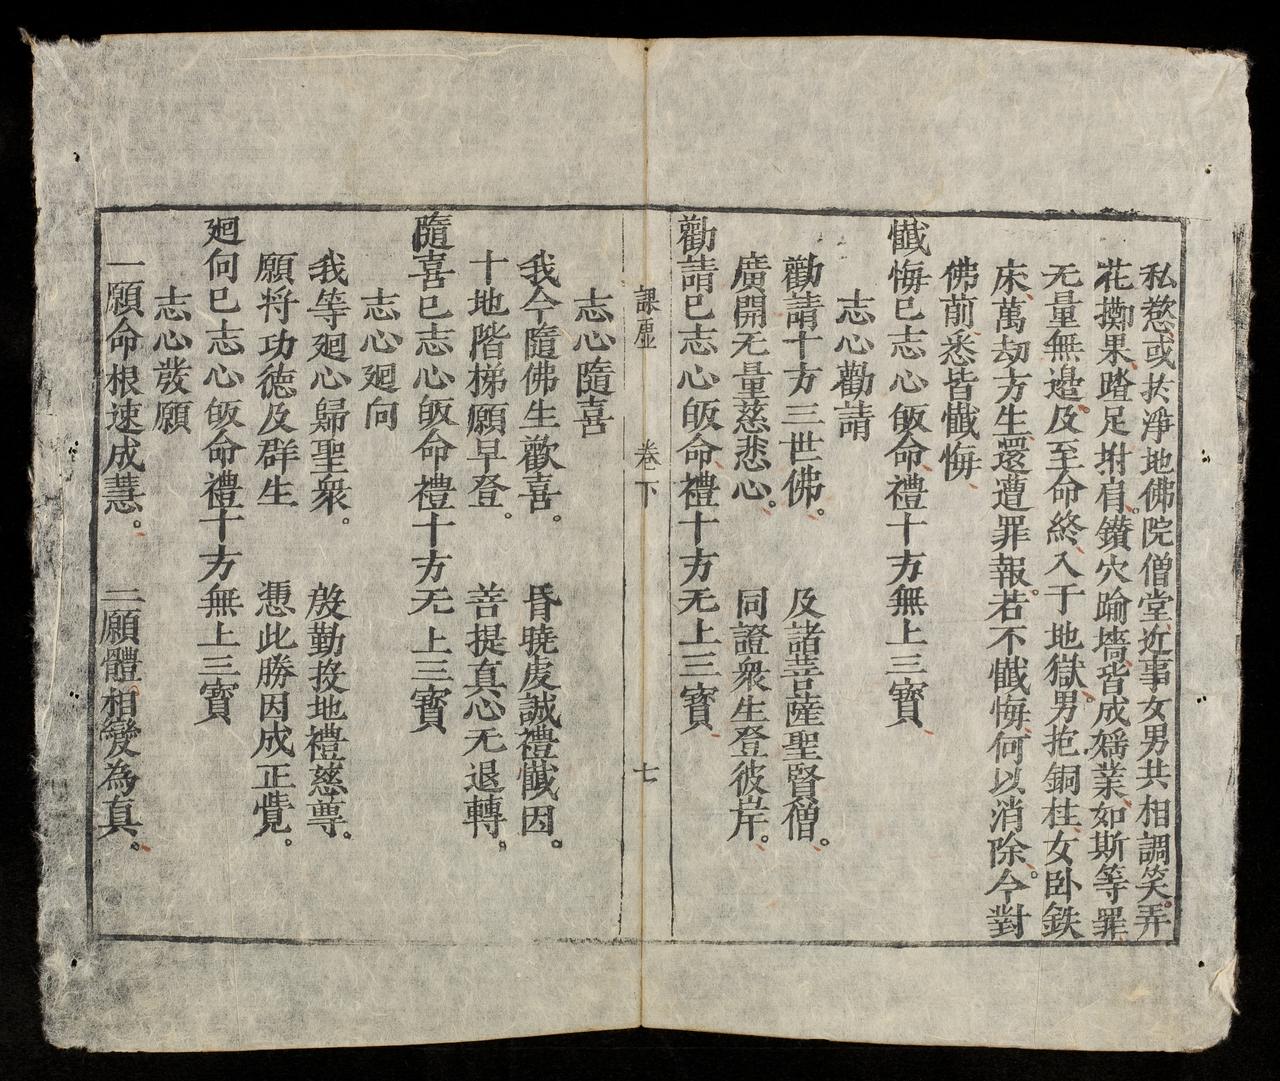 私慾或扵淨地佛院僧堂近事女男共相調笑。弄
花擲果蹅足拊肩。鑚穴踰墻皆成婬業如斯等罪
无量無邉及至命終入于地獄。男抱銅柱女卧鉄
床萬劫方生還遭罪報。若不懴悔何以消除。今對
佛前悉皆懴悔
懴悔已志心皈命禮十方無上三寳
志心勸請
勸請十方三世佛。 及諸菩薩聖賢僧。
廣開无量慈悲心。 同證衆生登彼岸。
勸請已志心皈命禮十方无上三寳
課虛 卷下 七
志心隨喜
我今隨佛生歡喜。 昏曉虔誠禮懴因。
十地階梯願早登。 菩提真心无退轉。
隨喜已志心皈命禮十方无上三寳
志心廻向
我等廻心歸聖衆。 殷勤投地禮慈尊。
願将功德及群生 憑此勝因成正覺。
廻向已志心皈命禮十方無上三寳
志心發願
一願命根速成慧。 二願體相變為真。